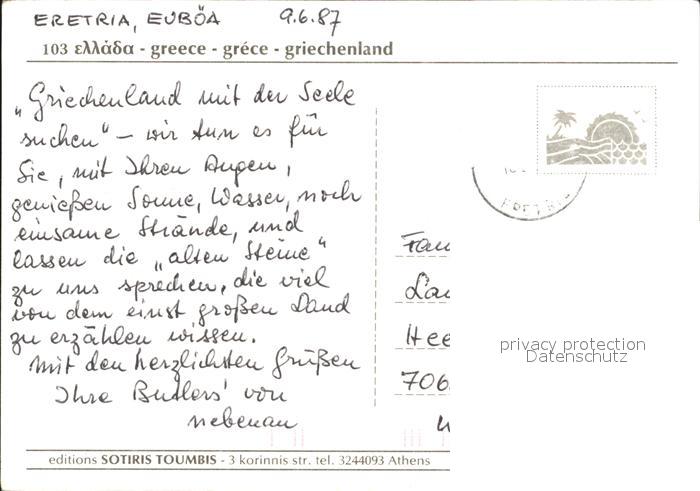 ERETRIA, EUBÖA 9.6.87
103 ελλάδα - greece - gréce - griechenland
„Griechenland mit der Seele
suchen“ – wir tun es für
Sie, mit Ihren Augen,
genießen Sonne, Wasser, noch
einsame Strände, und
lassen die „alten Steine“
zu uns sprechen, die viel
von dem einst großen Land
zu erzählen wissen.
Mit den herzlichsten Grüßen
Ihre Butlers' von
nebenan
Fam
Lau
Hee
706
privacy protection
Datenschutz
editions SOTIRIS TOUMBIS - 3 korinnis str. tel. 3244093 Athens